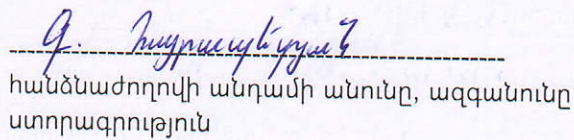 Գ. Հայրապետյան
հանձնաժողովի անդամի անունը, ազգանունը
ստորագրություն